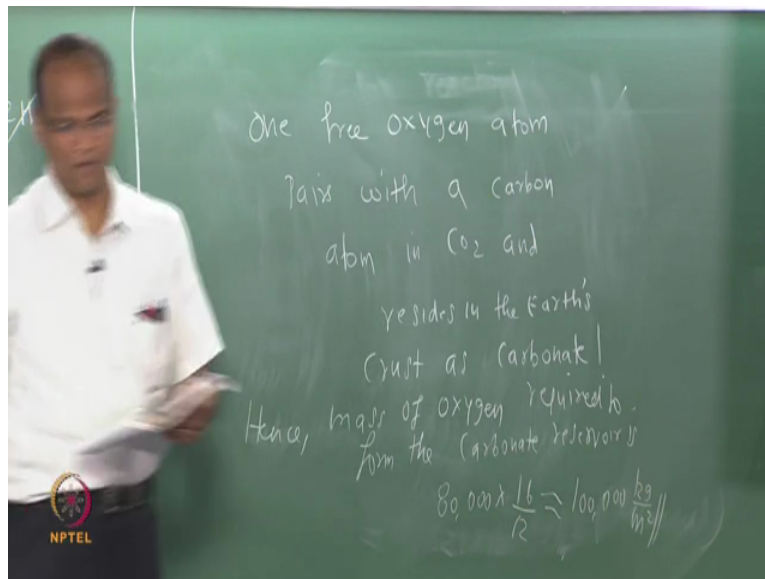 One free oxygen atom
Pairs with a Carbon
atom in CO2 and
resides in the Earth's
Crust as Carbonate!
Hence, mass of oxygen required to
form the Carbonate reservoir is
80,000 x 16/12 ≈ 100,000 kg/m²//
NPTEL